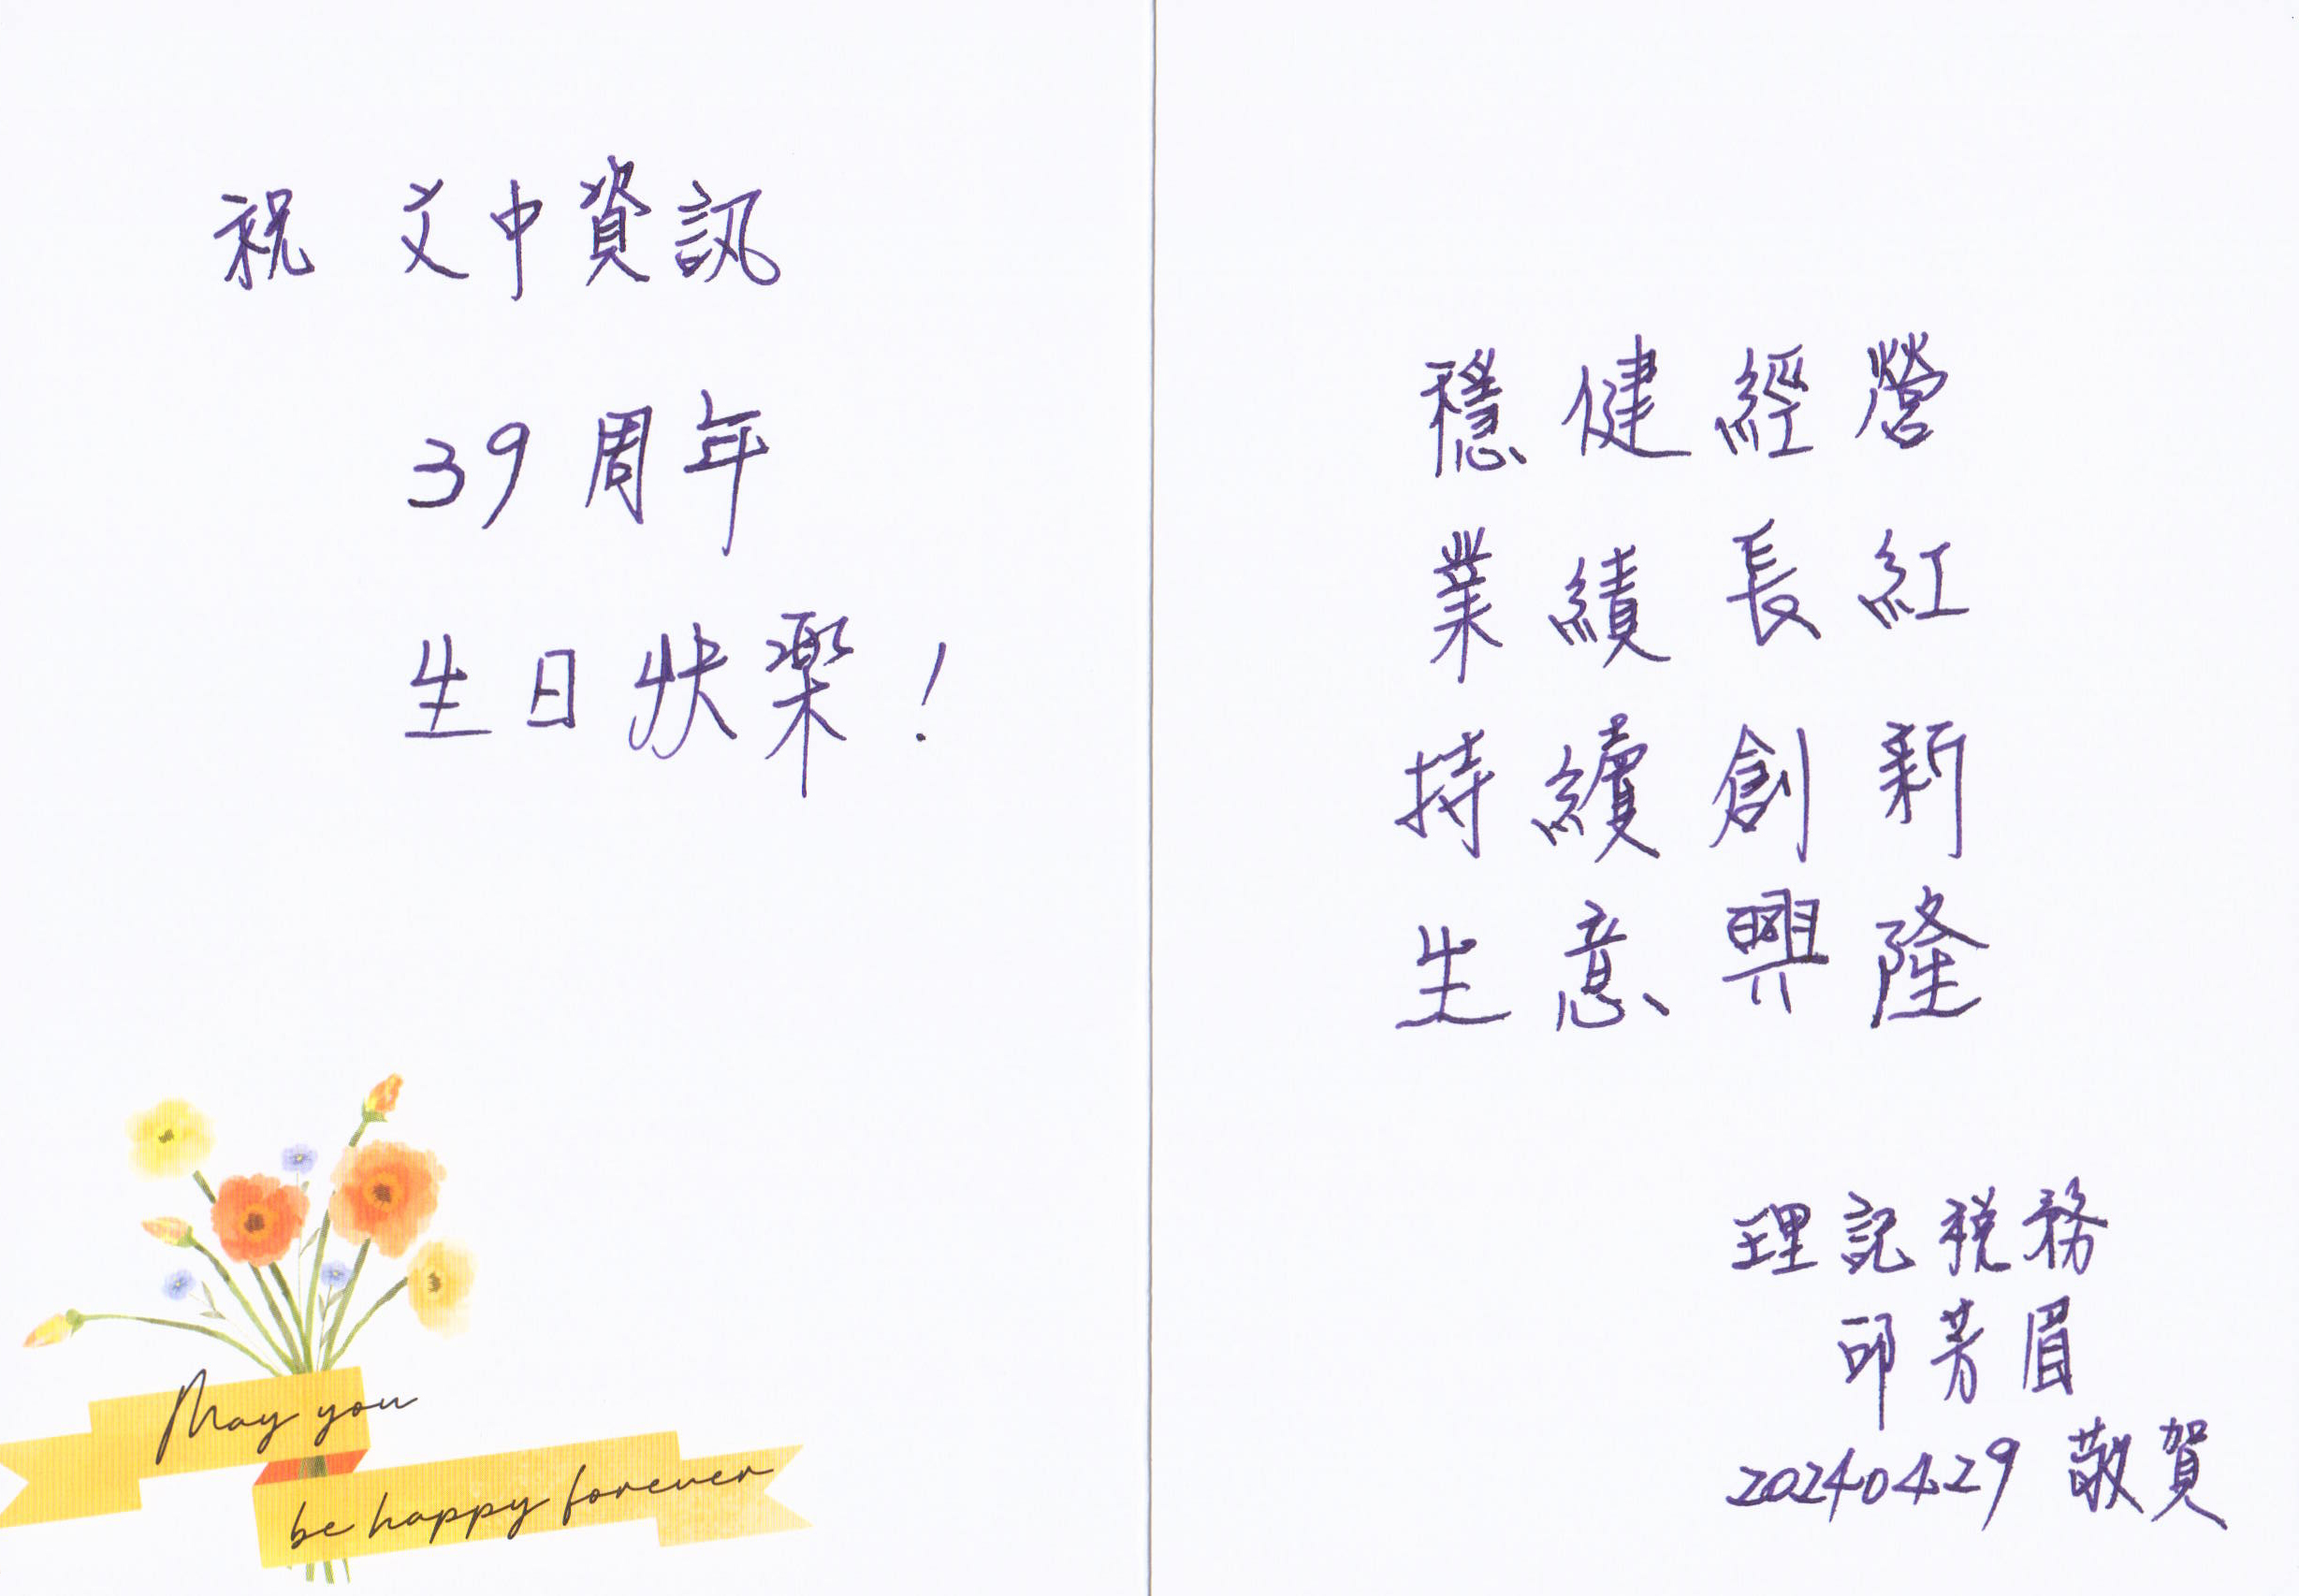 祝 文中資訊
39周年
生日快樂!
May you
be happy forever
穩健經營
業績長紅
持續創新
生意興隆
理記稅務
邱芳眉
2024.04.29 敬賀